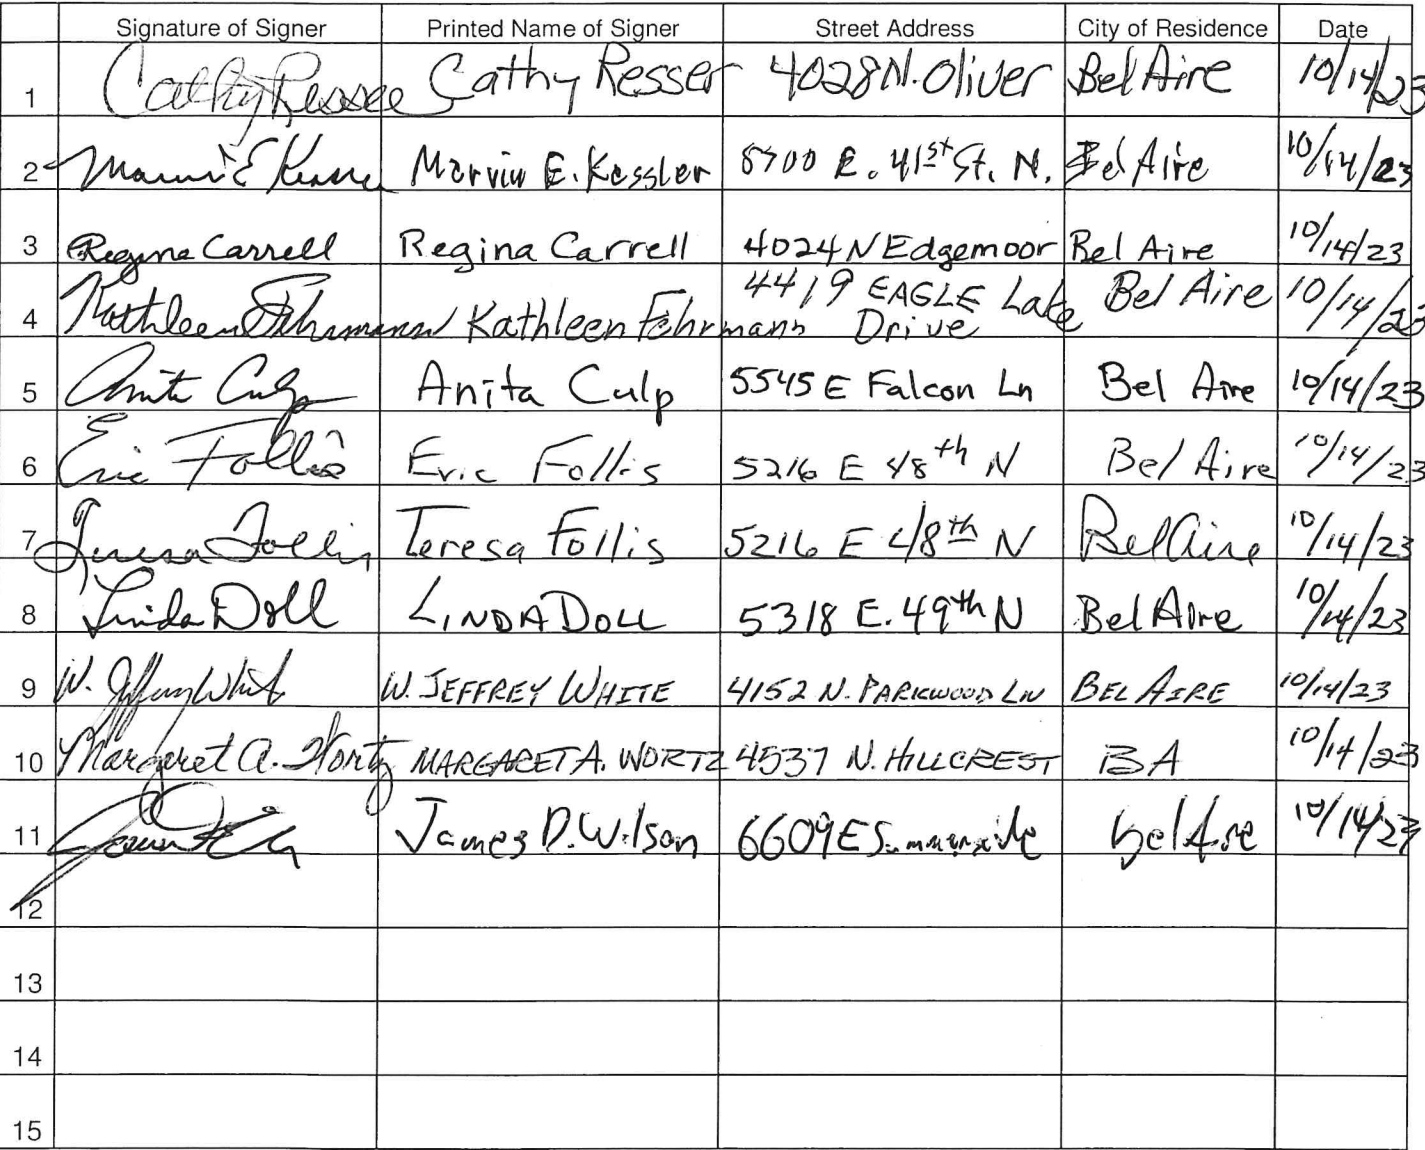 Signature of Signer Printed Name of Signer Street Address City of Residence Date
1 Cathy Resser Cathy Resser 4028 N. Oliver Bel Aire 10/14/23
2 Marvin E. Kessler 8700 E. 41st St. N. Bel Aire 10/14/23
3 Regina Carrell Regina Carrell 4024 N Edgemoor Bel Aire 10/14/23
4 Kathleen Fehrmann Kathleen Fehrmann 4419 EAGLE Lake Drive Bel Aire 10/14/23
5 Anita Culp Anita Culp 5545 E Falcon Ln Bel Aire 10/14/23
6 Eric Follis Eric Follis 5216 E 48th N Bel Aire 10/14/23
7 Teresa Follis Teresa Follis 5216 E 48th N Bel Aire 10/14/23
8 Linda Doll LINDA DOLL 5318 E. 49th N Bel Aire 10/14/23
9 W. Jeffrey White W. JEFFREY WHITE 4152 N. PARKWOOD LN BEL AIRE 10/14/23
10 Margaret A. Wortz MARGARET A. WORTZ 4537 N. HILLCREST BA 10/14/23
11 James D. Wilson 6609 E Bel Aire 10/14/23
12
13
14
15